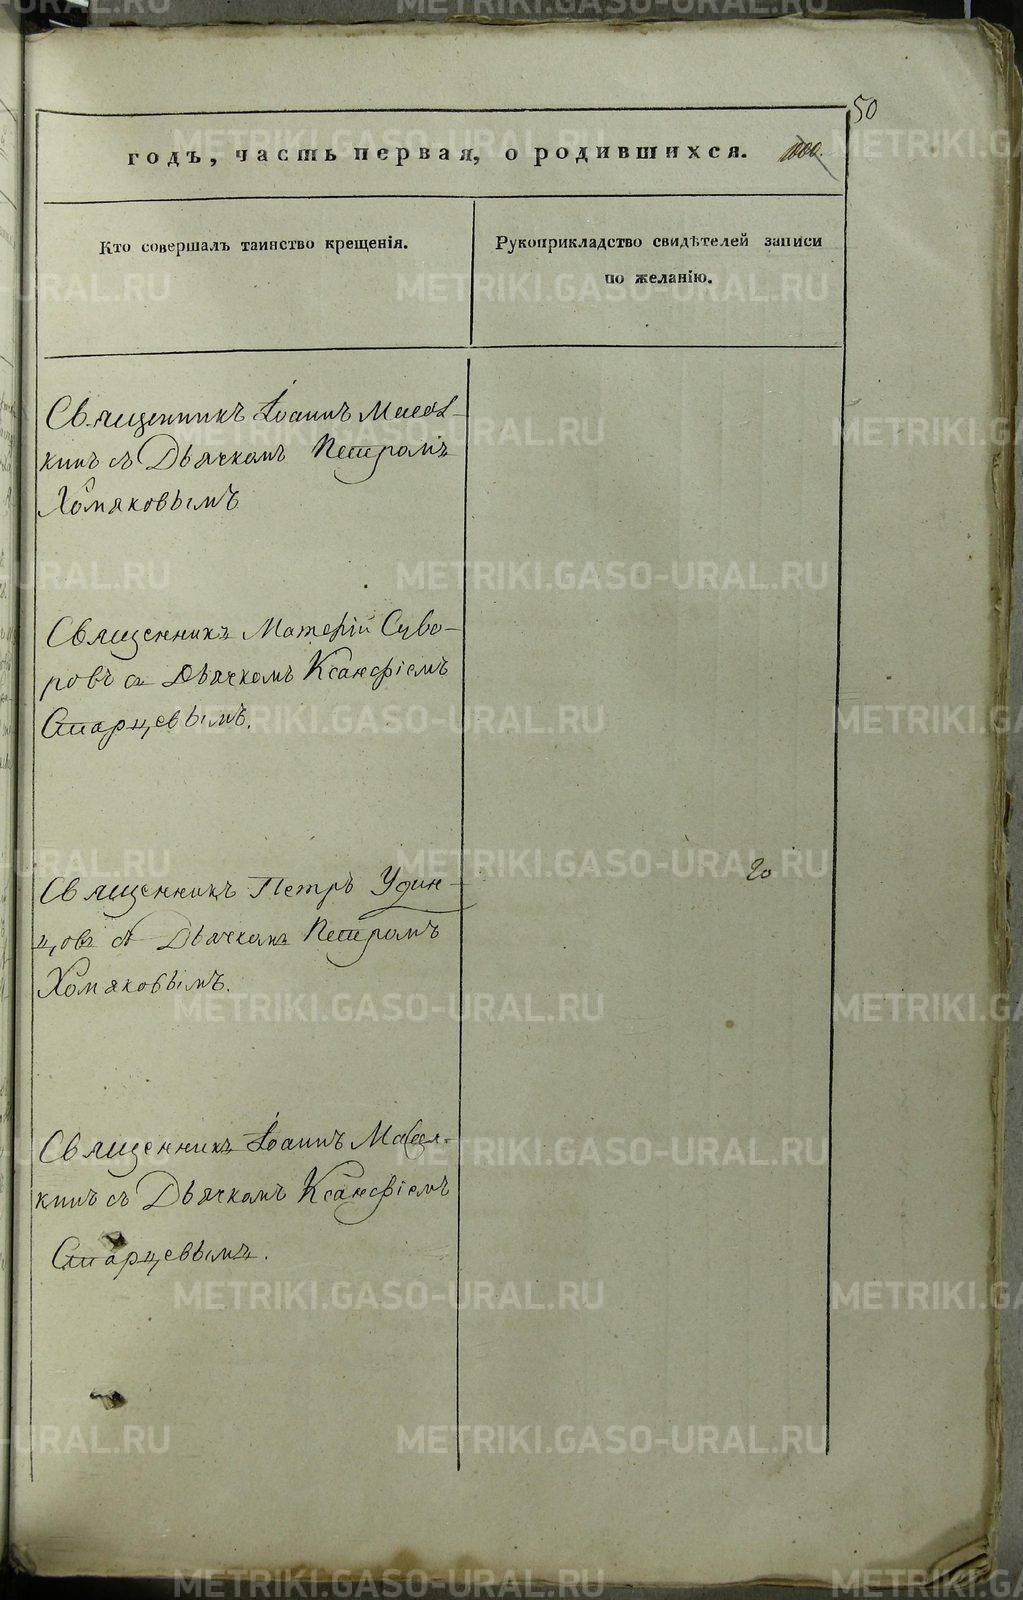 50
годъ, часть первая, о родившихся.
Кто совершалъ таинство крещенія.
Рукоприкладство свидѣтелей записи
по желанію.
Священникъ Іоаннъ
кинъ съ Дьячкомъ Петромъ
Хомяковымъ
Священникъ Матѳій Суво-
ровъ съ Дьячкомъ Ксанѳіемъ
Старцевымъ.
Священникъ Петръ Удин-
цовъ съ Дьячкомъ Петромъ
Хомяковымъ.
20
Священникъ Іоаннъ
кинъ съ Дьячкомъ Ксанѳіемъ
Старцевымъ.
METRIKI.GASO-URAL.RU